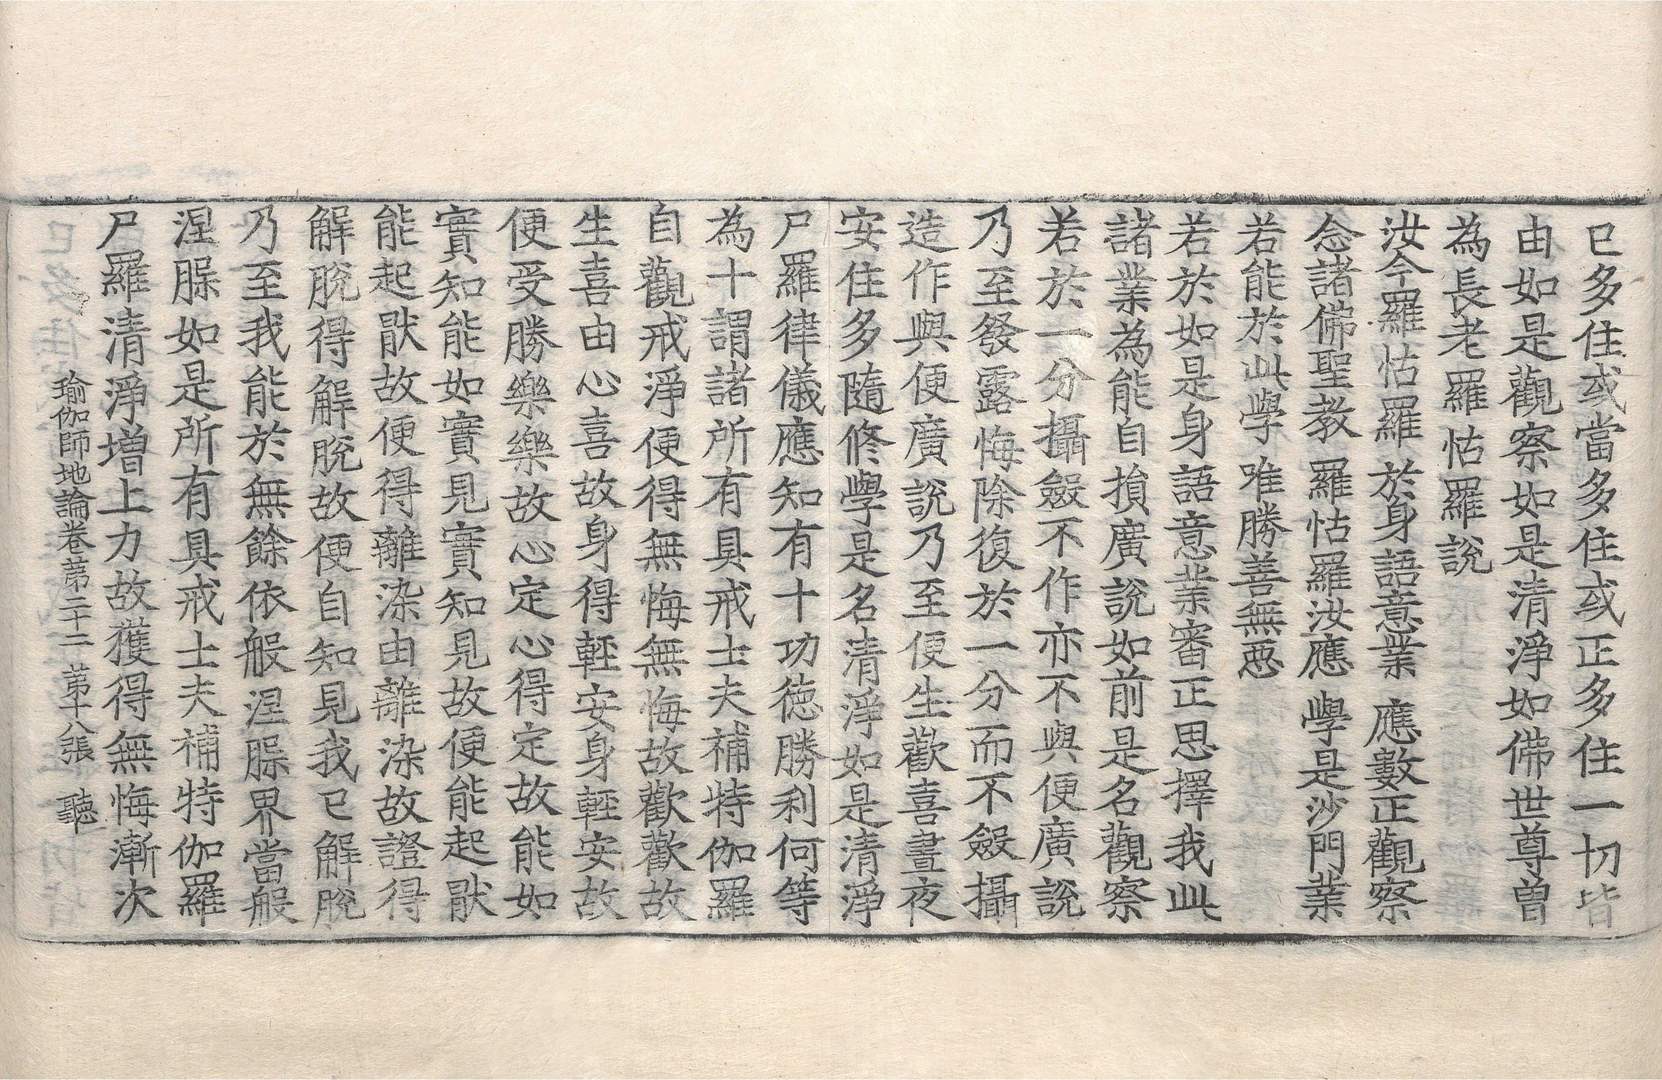 已多住或當多住或正多住一切皆
由如是觀察如是清淨如佛世尊曾
為長老羅怙羅說
汝今羅怙羅 於身語意業 應數正觀察
念諸佛聖教 羅怙羅汝應 學是沙門業
若能於此學 唯勝善無惡
若於如是身語意業審正思擇我此
諸業為能自損廣說如前是名觀察
若於一分攝斂不作亦不與便廣說
乃至發露悔除復於一分而不斂攝
造作與便廣說乃至便生歡喜晝夜
安住多隨修學是名清淨如是清淨
尸羅律儀應知有十功德勝利何等
為十謂諸所有具戒士夫補特伽羅
自觀戒淨便得無悔無悔故歡歡故
生喜由心喜故身得輕安身輕安故
便受勝樂樂故心定心得定故能如
實知能如實見實知見故便能起厭
能起厭故便得離染由離染故證得
解脫得解脫故便自知見我已解脫
乃至我能於無餘依般涅槃界當般
涅槃如是所有具戒士夫補特伽羅
尸羅清淨增上力故獲得無悔漸次
瑜伽師地論卷苐二十二 苐十八張 聽